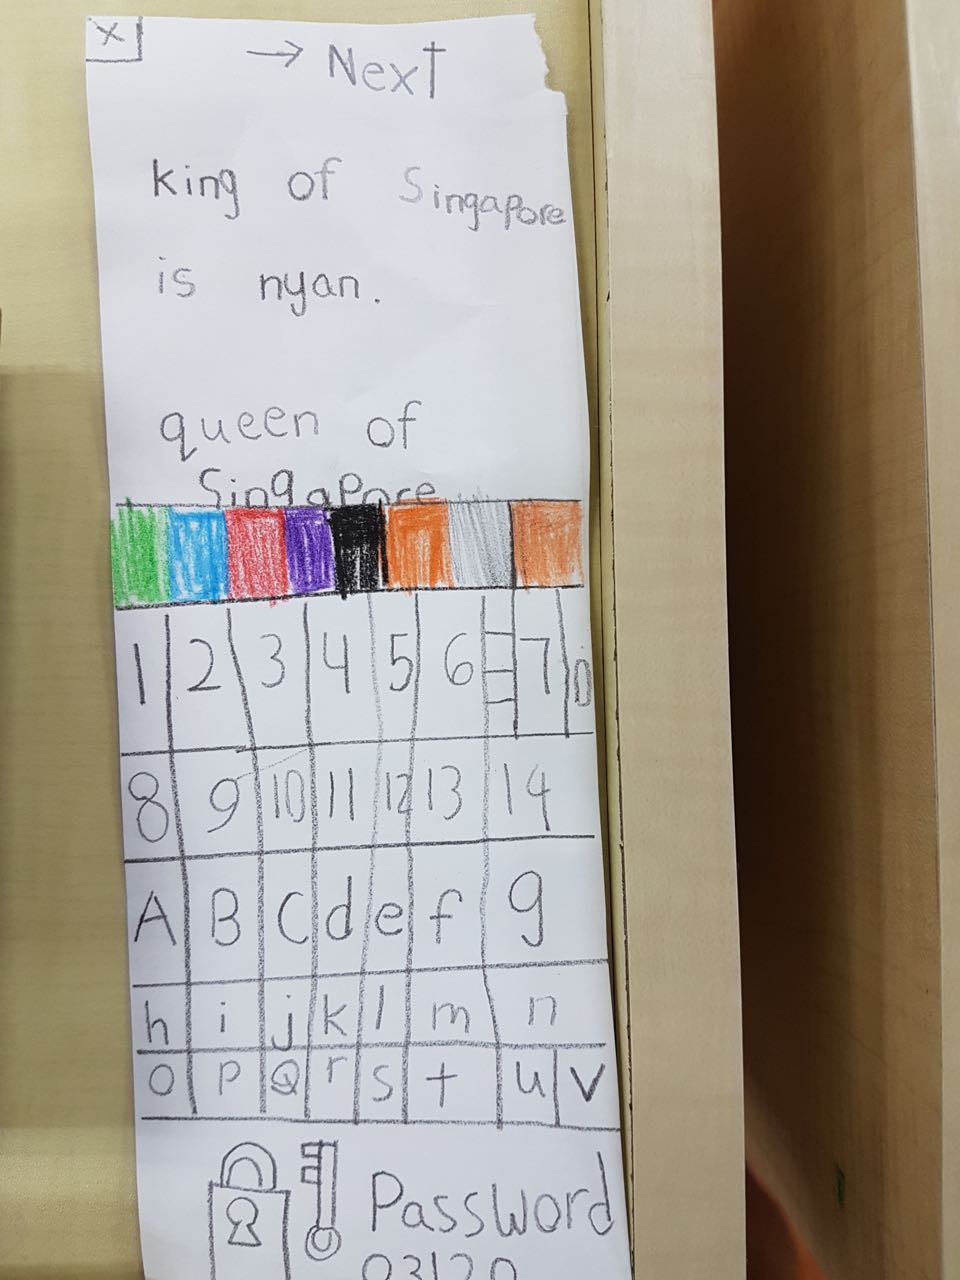 X
→ Next
king of Singapore
is nyan.
queen of
Singapore
1 2 3 4 5 6 7 0
8 9 10 11 12 13 14
A B C d e f g
h i j k l m n
o p Q r s t u v
Password
03120